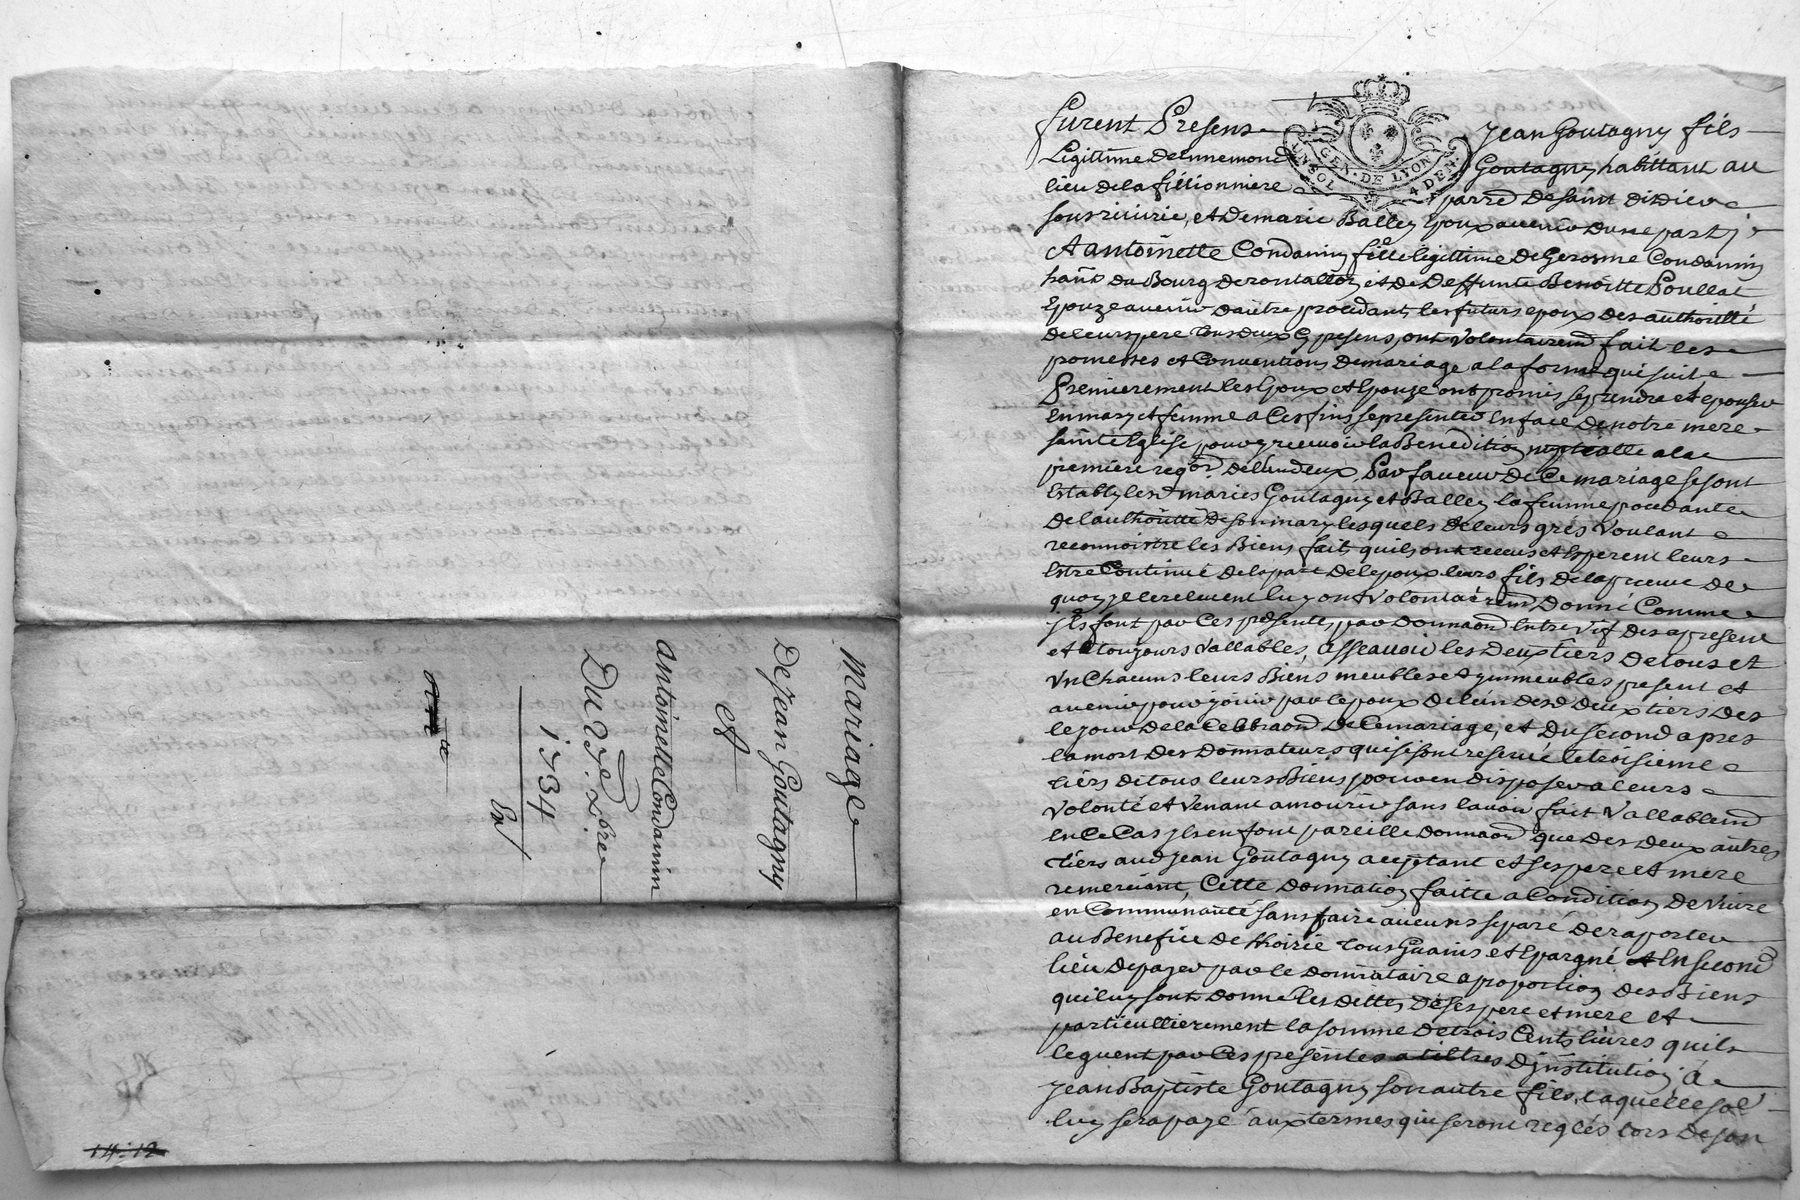 Mariage
De jean Goutagny
et
antoinette Condamin
Du 27e 7bre
1734
14:12
GEN. DE LYON
UN SOL 4 DEN.
furent Presens jean Goutagny fils
Legittime de Ennemond Goutagny habittant au
lieu de la fillionniere parre de saint didier
sous riuirie, et de marie Balley Epoux auenir dune part
Et antoinette Condamin fille legittime de Gerosme Condamin
hant du Bourg de rontallon et de deffunte Benoitte Poullat
Epouze auenir dautre procedant les futurs epoux des authoritté
de leurs pere tous deux Cy presens, ont Volontairemt fait les
promesses et Conuentions de mariage a la forme qui suit
Premierement les Epoux et Epouze ont promis se prendre et epouser
En mary et femme a Ces fins se presenter En face de notre mere
sainte Eglise pour y receuoir la Benedition nuptialle a la
premiere reqon de lun deux, Par faueur de Ce mariage se sont
Establys lesd maries Goutagny et Balley la femme procedante
de lauthoritté de son mary lesquels de leurs grés Voulant
reconnoistre les Biens fait quils ont receus et Esperent leurs
Estre Continué de la part de lepoux leurs fils de la preuue de
quoy je le releuent luy ont Volontairemt Donné Comme
jls font par Ces presentes par Donnaon Entre Vif des a present
et a toujours Vallables, asseauoir les deux tiers de tous et
Vn Chacuns leurs Biens meubles et ymmeubles present et
auenir pour jouir par lepoux de lun desd deux tiers des
le jour de la Celebraon de Ce mariage, et du second apres
la mort des Donnateurs qui se sont reserué le troisieme
tiers de tous leurs Biens pour en disposer a leurs
Volonté et Venant a mourir sans lauoir fait Vallablemt
En Ce Cas jls en font pareille donnaon que des deux autres
tiers aud jean Goutagny aceptant et ses pere et mere
remerciant, Cette donnation faitte a Condition de Viure
en Communauté sans faire aucuns separé de raporter
au Benefice de lhoirie tous Guains et Epargné En second
lieu de payer par le donnataire a proportion des Biens
qui luy sont donné les dettes de ses pere et mere et
particullierement la somme de trois Cents liures quils
leguent par Ces presentes a tiltres dinstitution a
jean Baptiste Goutagny son autre fils, laquelle so
luy sera payé aux termes qui seront reglés lors de son